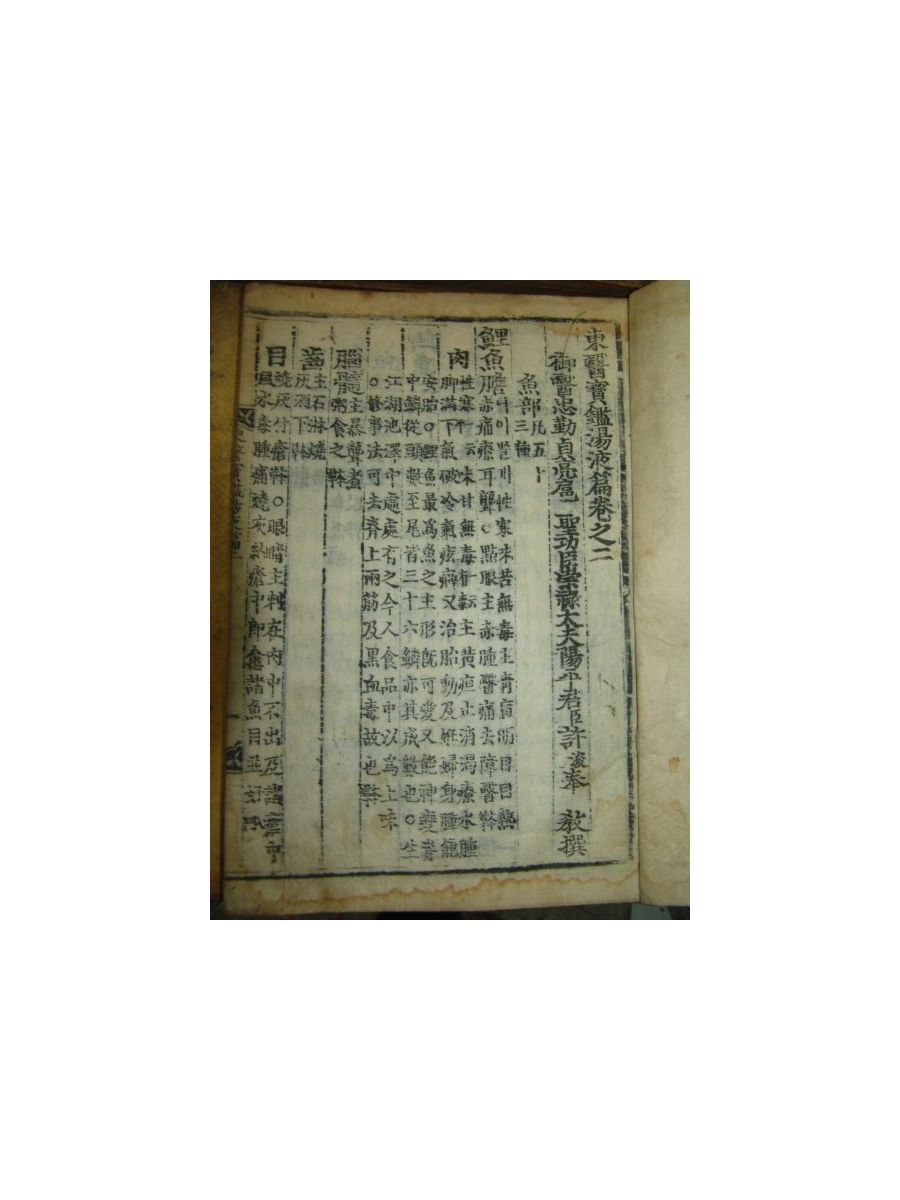 東醫寶鑑湯液篇卷之二
御醫忠勤貞亮扈聖功臣崇祿大夫陽平君臣許浚奉 敎撰
魚部凡五十三種
鯉魚膽 性寒味苦無毒主靑盲明目目熱
赤痛療耳聾○點眼主赤腫瞖痛去障瞖
肉 性寒一云平味甘無毒一云主黃疸止消渴療水腫
脚滿下氣破冷氣痃癖又治胎動及姙婦身腫能
安胎○鯉魚最爲魚之主形旣可愛又能神變脊
中鱗從頭數至尾皆三十六鱗亦其成數也○生
江湖池澤中處處有之今人食品中以爲上味
○修事法可去脊上兩筋及黑血毒故也
腦髓 主暴聾煮
粥食之
齒 主石淋燒
灰酒下
目 燒灰付瘡○眼睛主刺在肉中不出及諸瘡中
風水毒腫痛燒灰納瘡中卽諸魚目並好